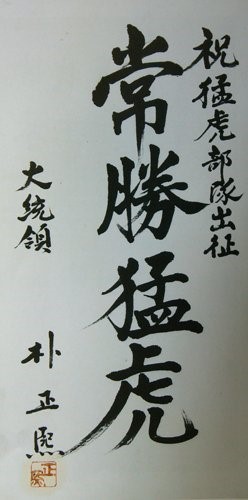 祝猛虎部隊出征
常勝猛虎
大統領
朴正熙